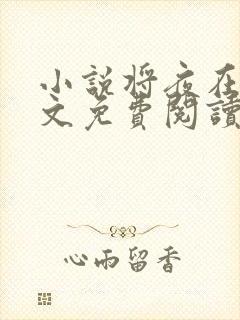 小説将夜在
文免費閱讀
心雨留香